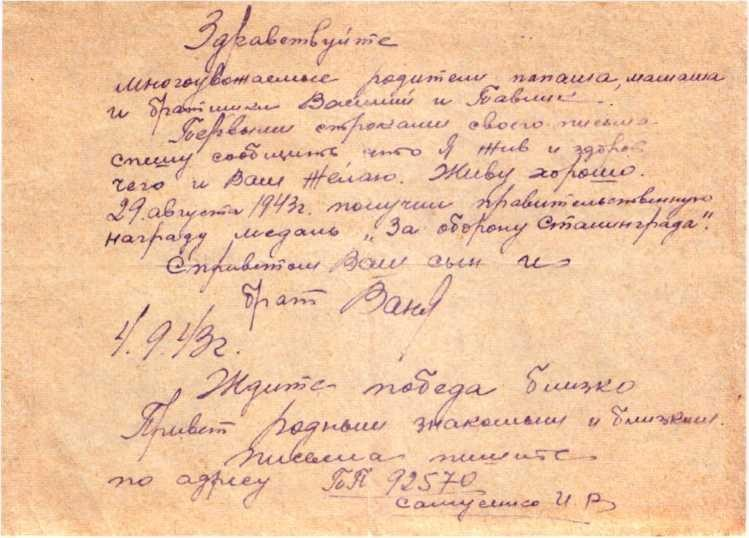 Здравствуйте
многоуважаемые родители папаша, мамаша
и братишки Василий и Павлик.
Первыми строками своего письма
спешу сообщить что я жив и здоров
чего и Вам желаю. Живу хорошо.
29 августа 1943г. получил правительственную
награду медаль „За оборону Сталинграда".
С приветом Ваш сын и
брат Ваня
4.9.43г.
Ждите победа близко
Привет родным знакомым и близким.
письма пишите
по адресу ПП 92570
И. В.